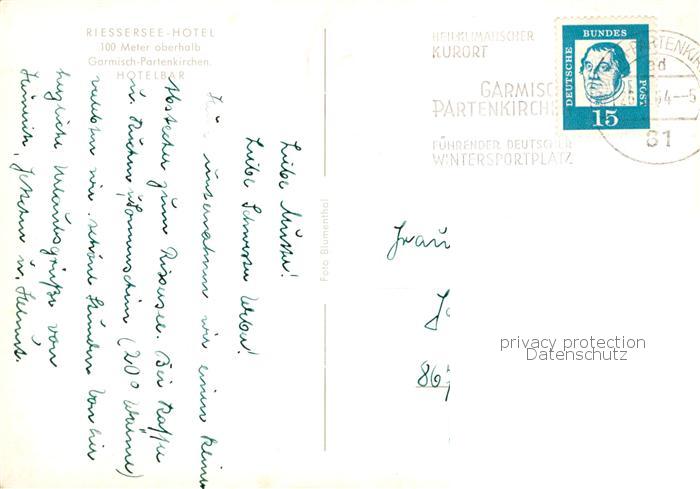 RIESSERSEE-HOTEL
100 Meter oberhalb
Garmisch-Partenkirchen.
HOTELBAR
Liebe Mutter!
Liebe Schwester
wir einen kleinen
Abstecher zum Riessersee. Bei Kaffee
u. Kuchen u. Sonnenschein (20° Wärme)
wir schöne Stunden. Von hier
herzliche Urlaubsgrüße von
Heinrich, u. Helmut.
Foto Blumenthal
HEILKLIMATISCHER
KURORT
GARMISCH
PARTENKIRCHE
FÜHRENDER DEUTSCHER
WINTERSPORTPLATZ
DEUTSCHE BUNDES POST
15
-PARTENKIR
64--5
81
Frau
86
privacy protection
Datenschutz